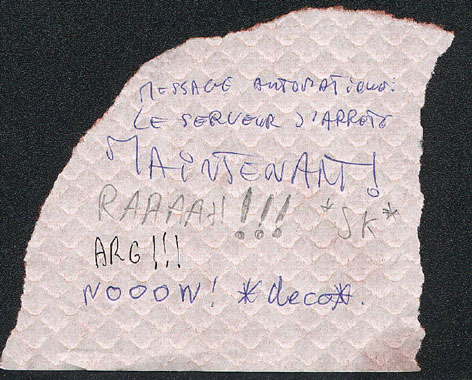 MESSAGE AUTOMATIQUE:
LE SERVEUR S'ARRETE
MAINTENANT!
RAAAAH!!!! *SK*
ARG!!!
NOOON! *deco*.